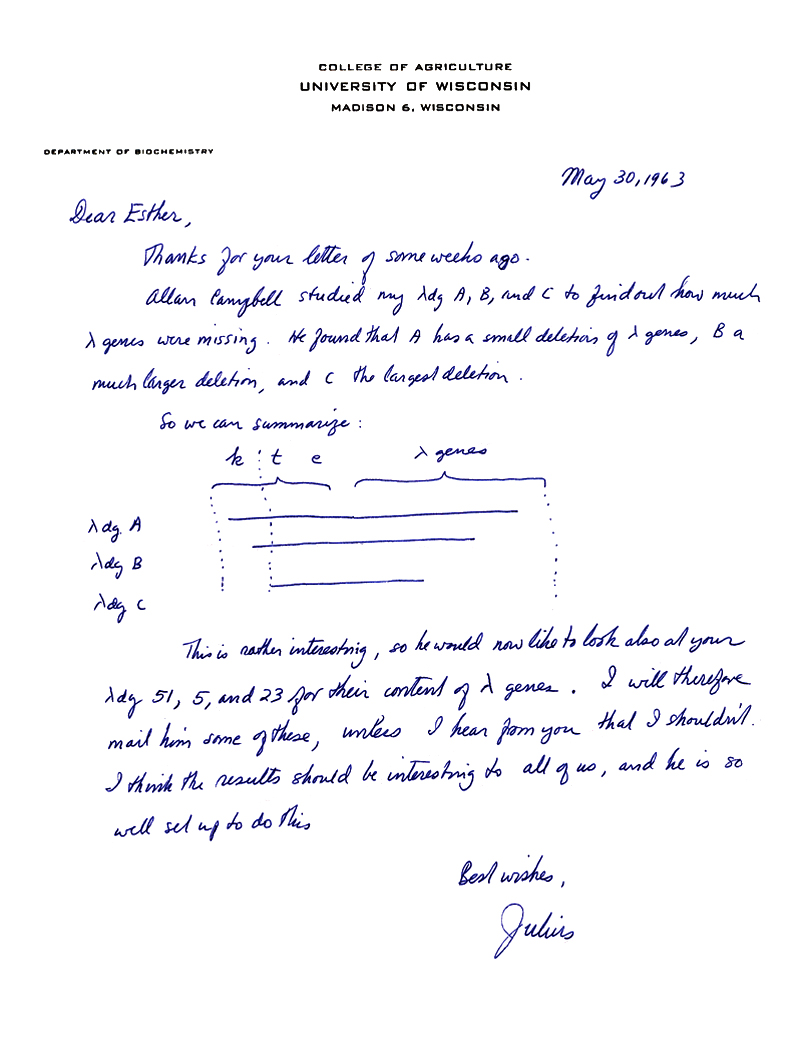 COLLEGE OF AGRICULTURE
UNIVERSITY OF WISCONSIN
MADISON 6, WISCONSIN
DEPARTMENT OF BIOCHEMISTRY
May 30, 1963
Dear Esther,
Thanks for your letter of some weeks ago.
Allan Campbell studied my λdg A, B, and C to find out how much
λ genes were missing. He found that A has a small deletion of λ genes, B a
much larger deletion, and C the largest deletion.
So we can summarize:
k t e λ genes
λdg A
λdg B
λdg C
This is rather interesting, so he would now like to look also at your
λdg 51, 5, and 23 for their content of λ genes. I will therefore
mail him some of these, unless I hear from you that I shouldn't.
I think the results should be interesting to all of us, and he is so
well set up to do this
Best wishes,
Julius